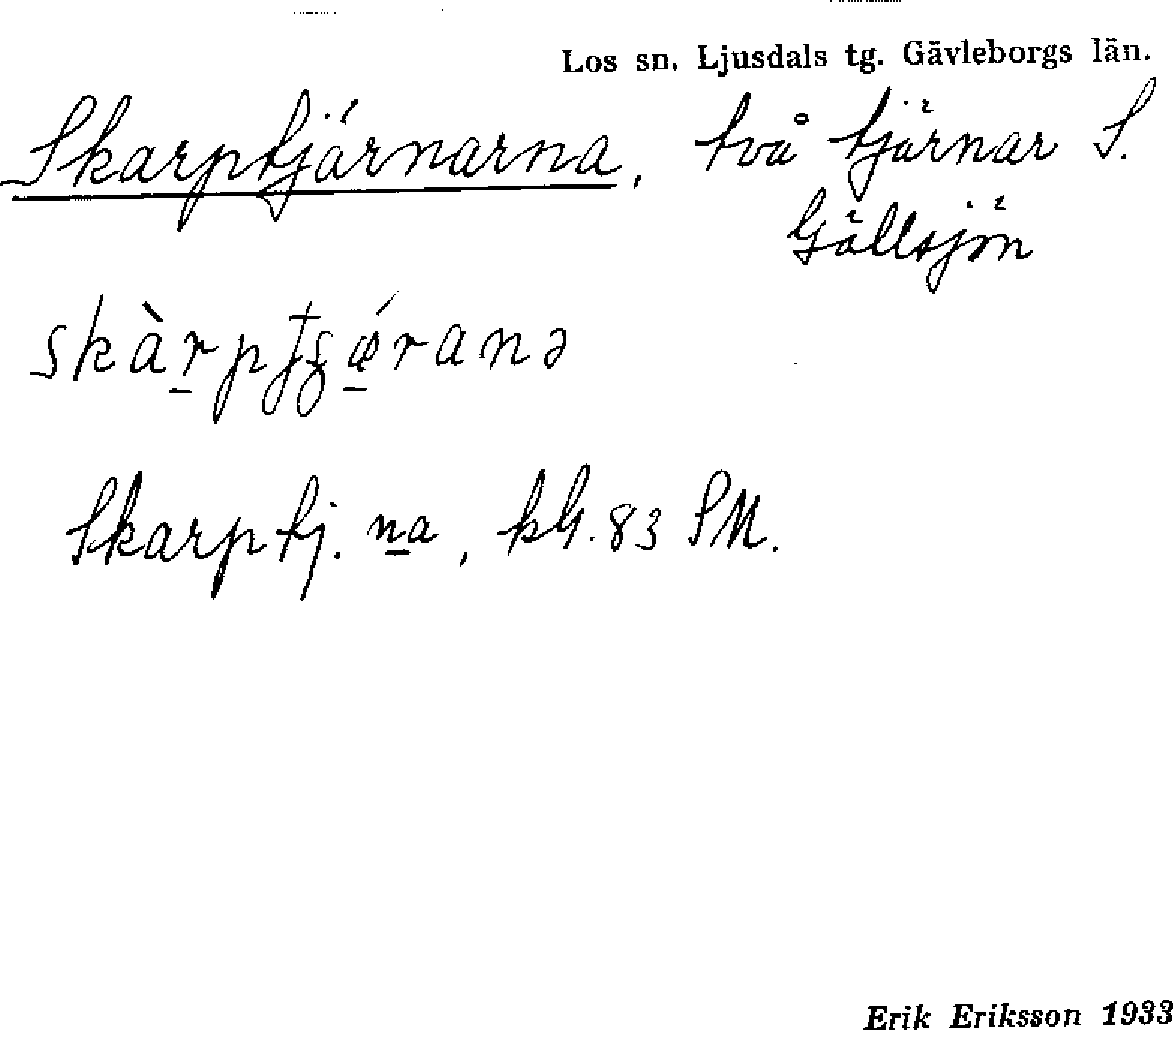 Los sn. Ljusdals tg. Gävleborgs län.
Skarptjärnarna, två tjärnar S.
Gällsjön
skàr̲pţʂǽ̲ranə
Skarptj. na, kG. 83 SM.
Erik Eriksson 1933